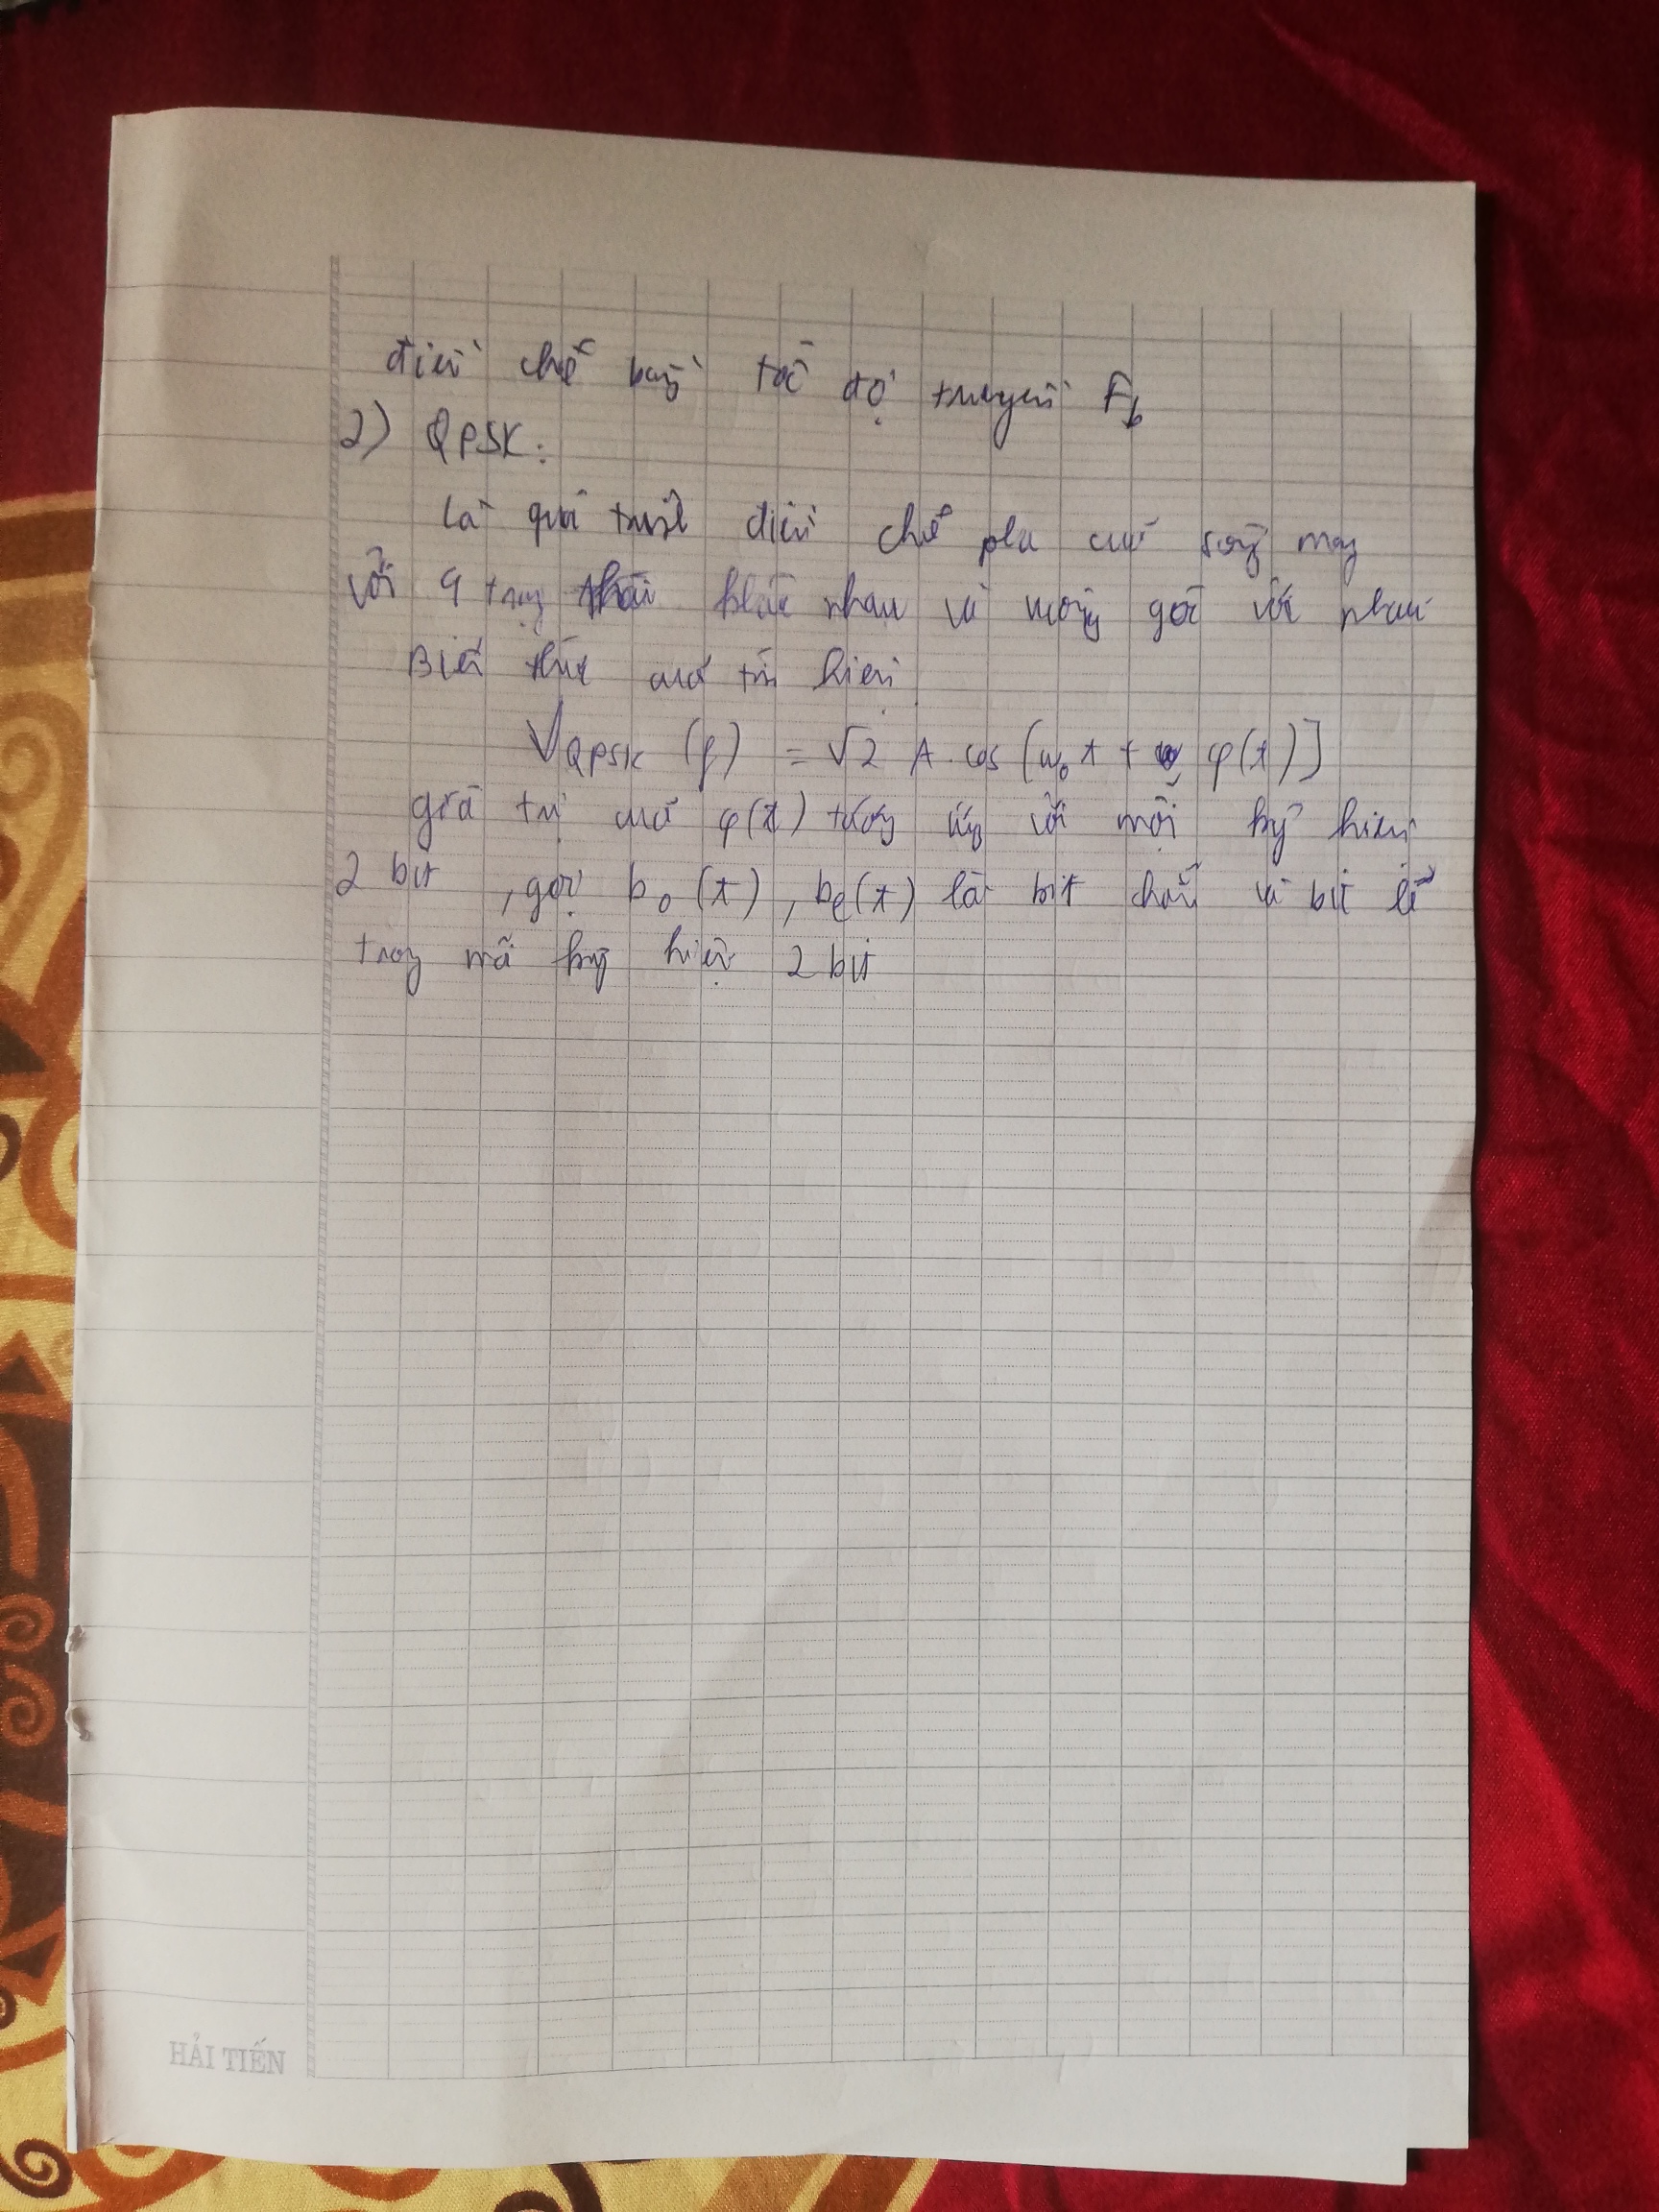 điều chế bằng tốc độ truyền Fb
2) QPSK:
Là quá trình điều chế pha của sóng mang
với 4 trạng thái khác nhau và vuông góc với nhau
Biểu thức của tín hiệu
V_QPSK (t) = √2 A. cos [ω₀t + φ(t)]
giá trị của φ(t) tương ứng với mỗi ký hiệu
2 bit, gọi b₀(t), bₑ(t) là bit chẵn và bit lẻ
trong mã ký hiệu 2 bit
HẢI TIẾN